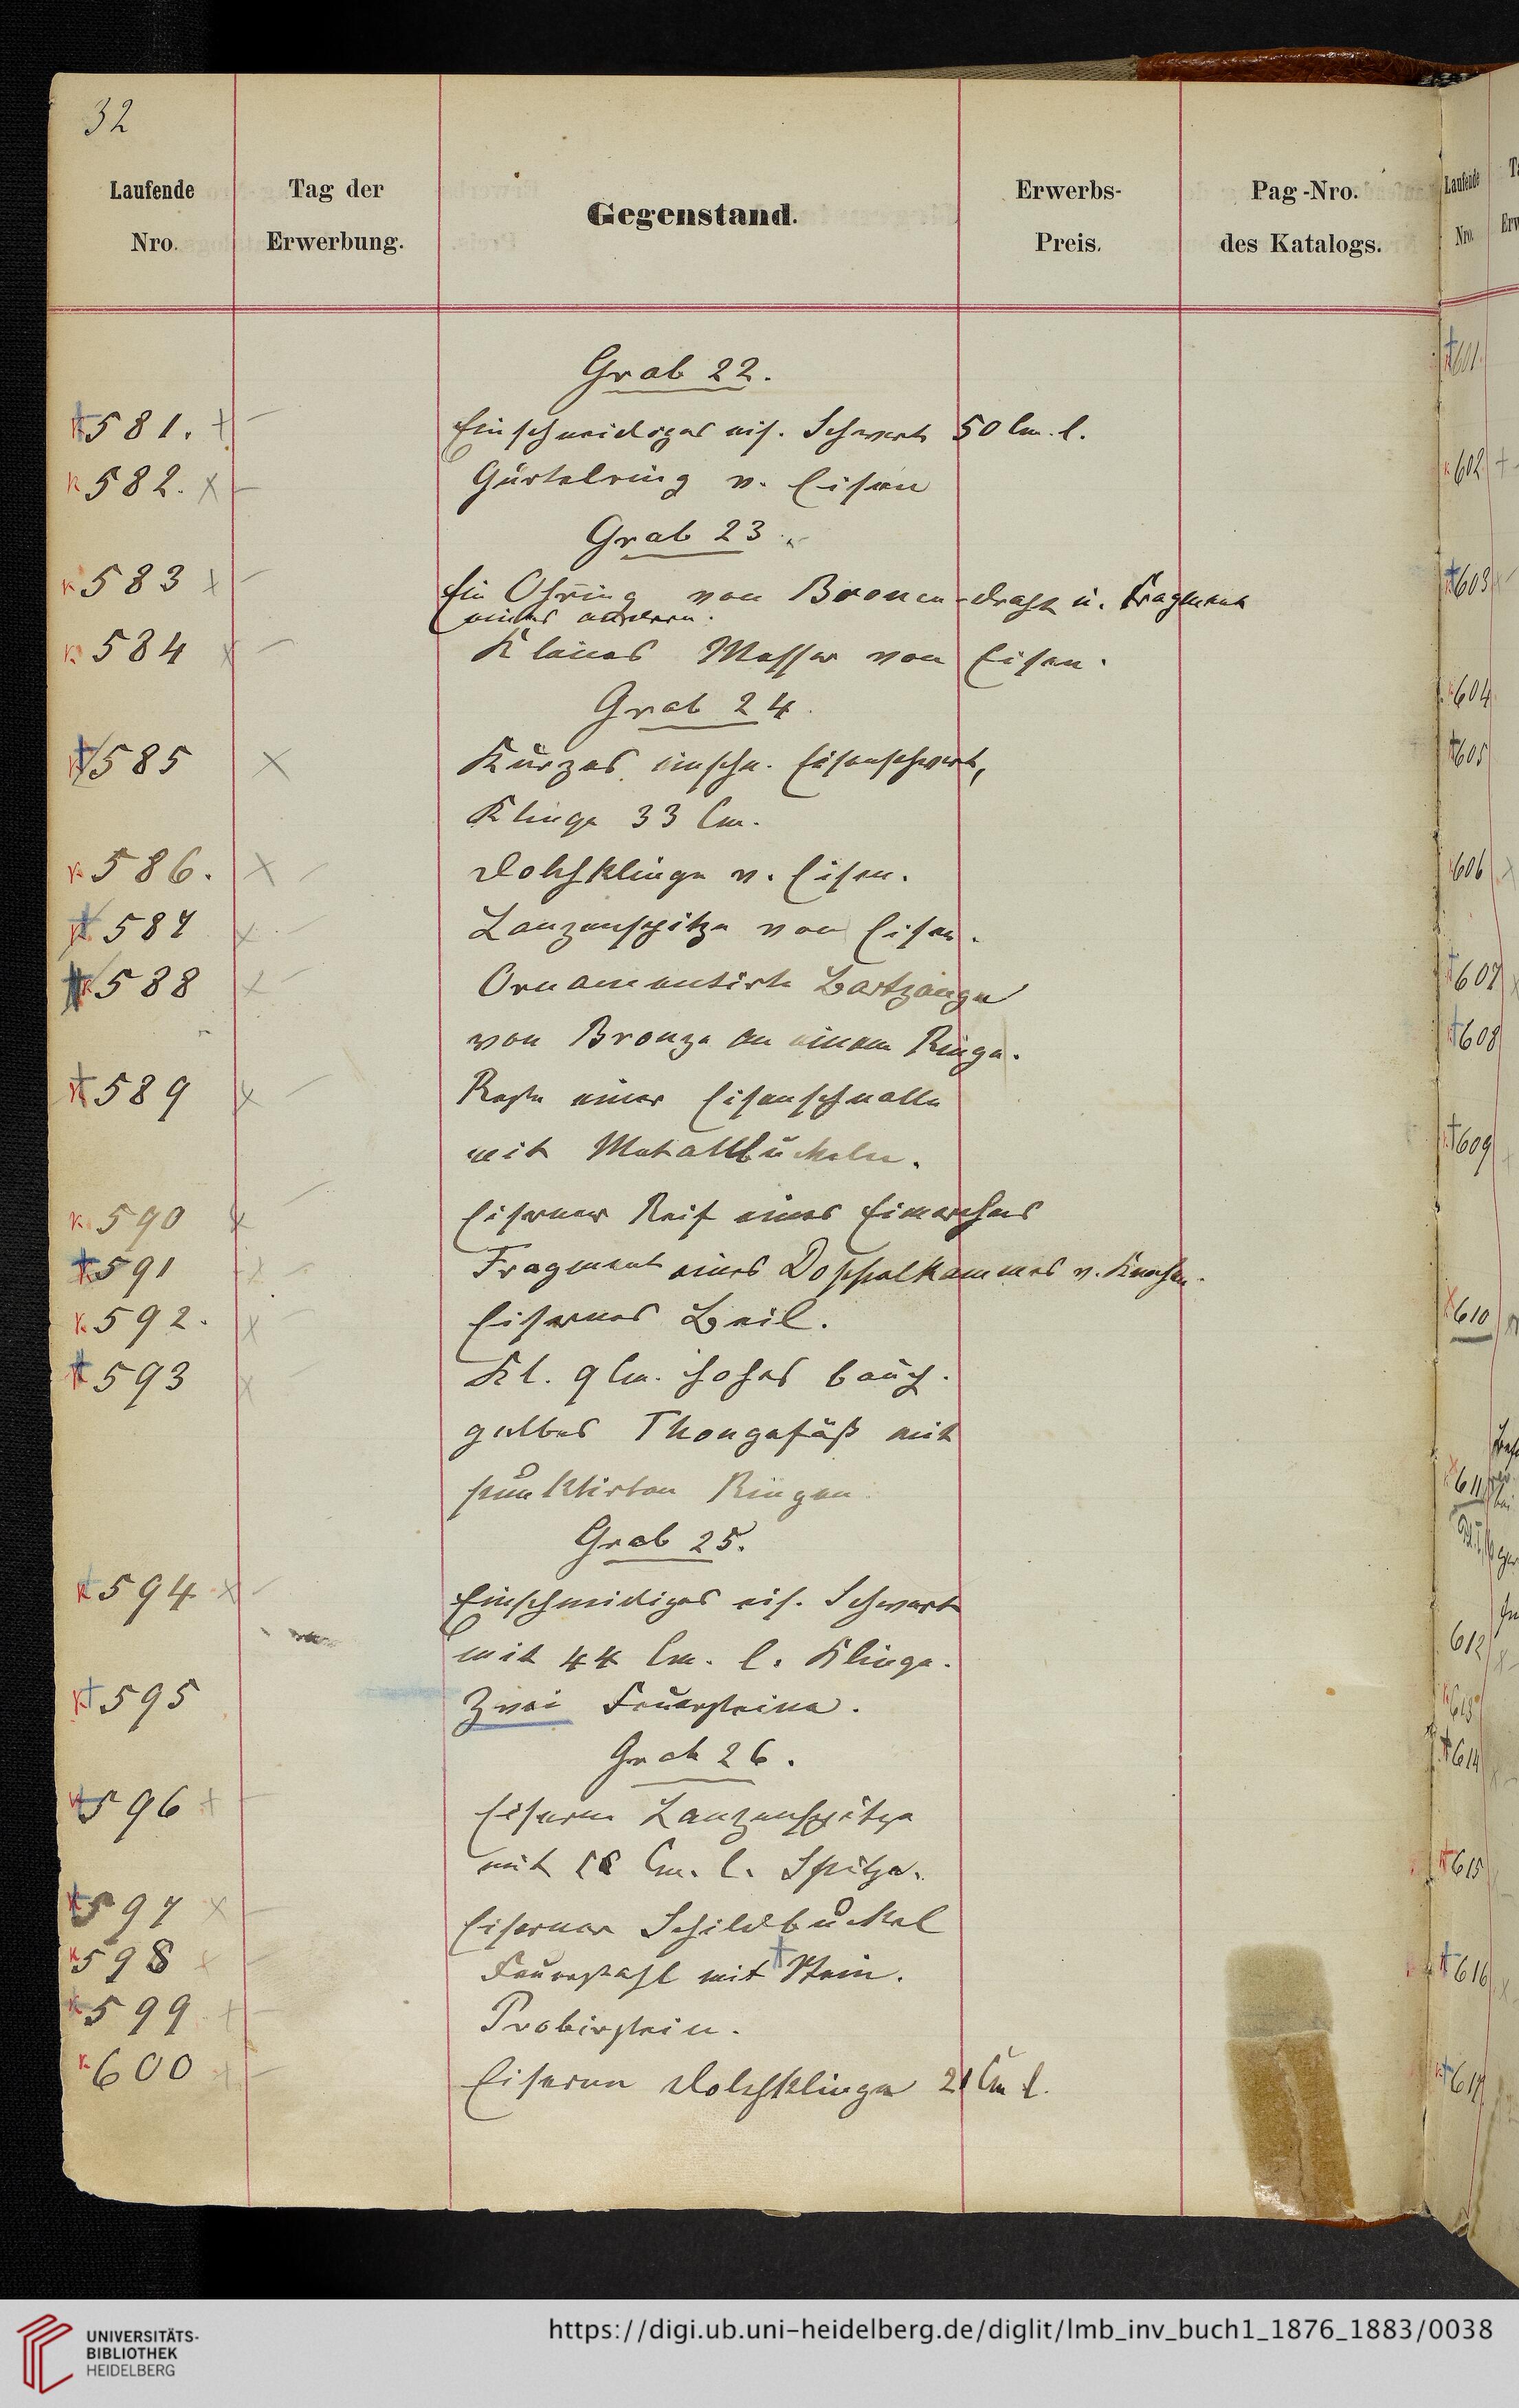 32
Laufende Nro. Tag der Erwerbung. Gegenstand. Erwerbs-Preis. Pag-Nro. des Katalogs.
Grab 22.
581. Einschneidiges eis. Schwert 50 Cm. l.
582. Gürtelring v. Eisen
Grab 23.
583 Ein Ohring von Broncedraht u. Fragment
eines andern.
584 Kleines Messer von Eisen.
Grab 24.
585 Kurzes einschn. Eisenschwert,
Klinge 33 Cm.
586. Dolchklinge v. Eisen.
587 Lanzenspitze von Eisen.
588 Ornamentirte Bartzange
von Bronze an einem Ringe.
589 Reste einer Eisenschnalle
mit Metallbuckeln.
590 Eiserner Reif eines Eimerchens
591 Fragment eines Doppelkammes v. Knochen.
592. Eisernes Beil.
593 Kl. 9 Cm. hohes bauch.
gelbes Thongefäß mit
punktirten Ringen.
Grab 25.
594 Einschneidiges eis. Schwert
mit 44 Cm. l. Klinge.
595 Zwei Feuersteine.
Grab 26.
596 Eiserne Lanzenspitze
mit Cm. l. Spitze.
597 Eiserner Schildbuckel
598 Feuerstahl mit Stein.
599 Probirstein.
600 Eiserne Dolchklinge 21 Cm l.
601.
602
603
604
605
606
607
608
609
610
611
612
613
614
615
616
617
UNIVERSITÄTS-
BIBLIOTHEK
HEIDELBERG
https://digi.ub.uni-heidelberg.de/diglit/lmb_inv_buch1_1876_1883/0038